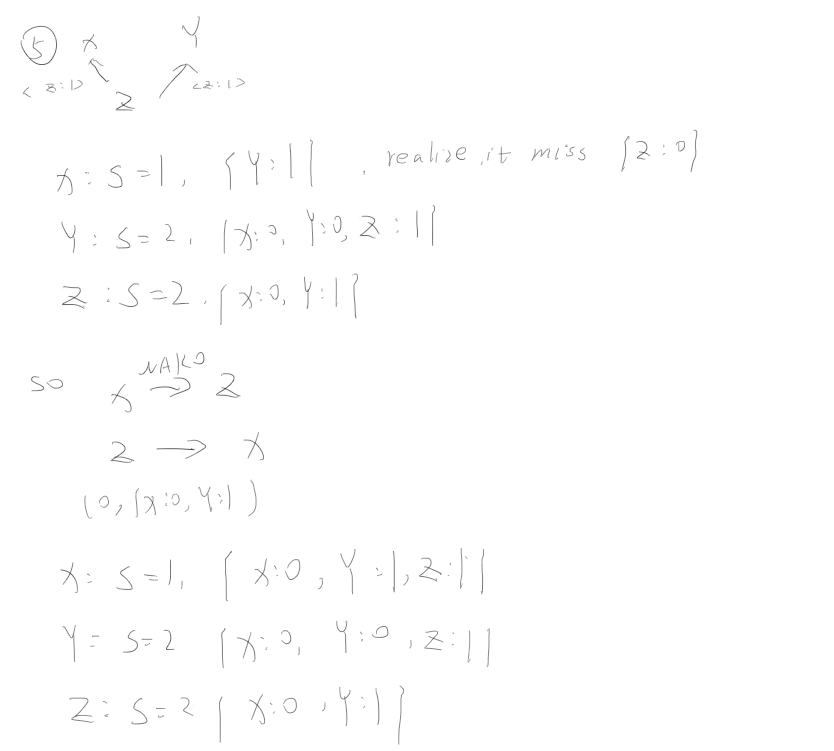 ⑤ X Y
<Z:1> Z <Z:1>
X: S=1, {Y:1} , realize it miss {Z:0}
Y: S=2, {X:0, Y:0, Z:1}
Z: S=2, {X:0, Y:1}
so X NAK0 → Z
Z → X
(0, {X:0, Y:1})
X: S=1, {X:0, Y=1, Z:1}
Y= S=2 {X:0, Y:0, Z:1}
Z: S=2 {X:0, Y:1}